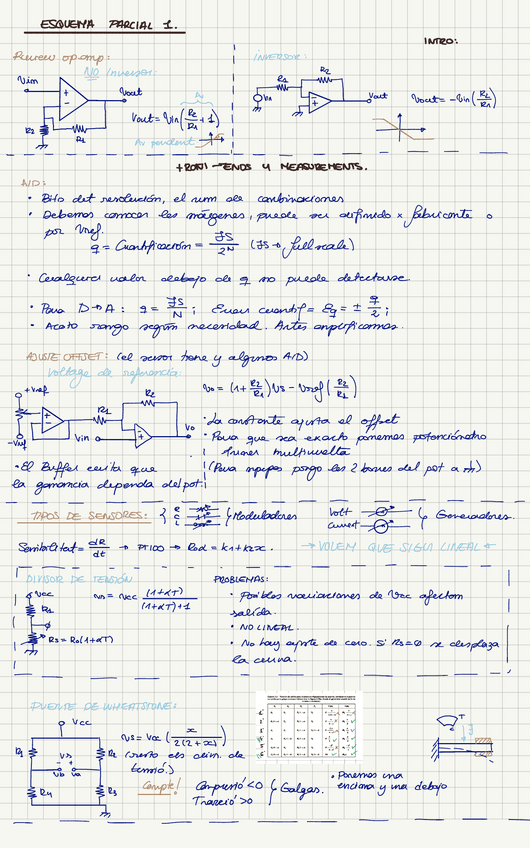 ESQUEMA PARCIAL 1.
INTRO:
Review op.amp:
NO Inversor:
Vin
Vout
R2
R1
Av
Vout = Vin (R2/R1 + 1)
Av pendent
INVERSOR:
R1
R2
Vin
Vout
Vout = -Vin (R2/R1)
FRONT-ENDS Y MEASUREMENTS.
A/D:
• Bits det resolución, el num de combinaciones
• Debemos conocer los márgenes, puede ser definido x fabricante o
por Vref.
q = Cuantificación = FS/2^N (FS → full scale)
• Cualquier valor debajo de q no puede detectarse.
• Para D→A: q = FS/N ; Error cuantif = Eq = ± q/2 ;
• Acoto rango según necesidad. Antes amplificamos.
AJUSTE OFFSET: (el sensor tiene y algunos A/D)
Voltage de referencia:
+Vref
-Vref
R1
R2
Vin
Vo
Vo = (1 + R2/R1) Vs - Vref (R2/R1)
• La constante ajusta el offset
• Para que sea exacto ponemos potenciómetro
multivuelta
• El Buffer evita que
la ganancia dependa del pot
TIPOS DE SENSORES:
R
C
L
Moduladores
Volt
Current
Generadores.
Sensibilitat = dR/dt → PT100 → Rod = k1 + k2x.
→ VOLEM QUE SIGUI LINEAL ←
DIVISOR DE TENSIÓN
Vcc
R1
Rs = R0(1+αT)
Vs = Vcc (1+αT)/((1+αT)+1)
PROBLEMAS:
• Posibles variaciones de Vcc afectan
salida.
• NO LINEAL.
• No hay ajuste de cero. Si Rs=0 se desplaza
la curva.
PUENTE DE WHEATSTONE:
Vcc
R1
R2
R4
R3
Vs
Vb
Va
Vs = Vcc (x / 2(2+x))
Compte!
Compresió <0
Tracció >0
Galgas.
• Ponemos una
encima y una debajo